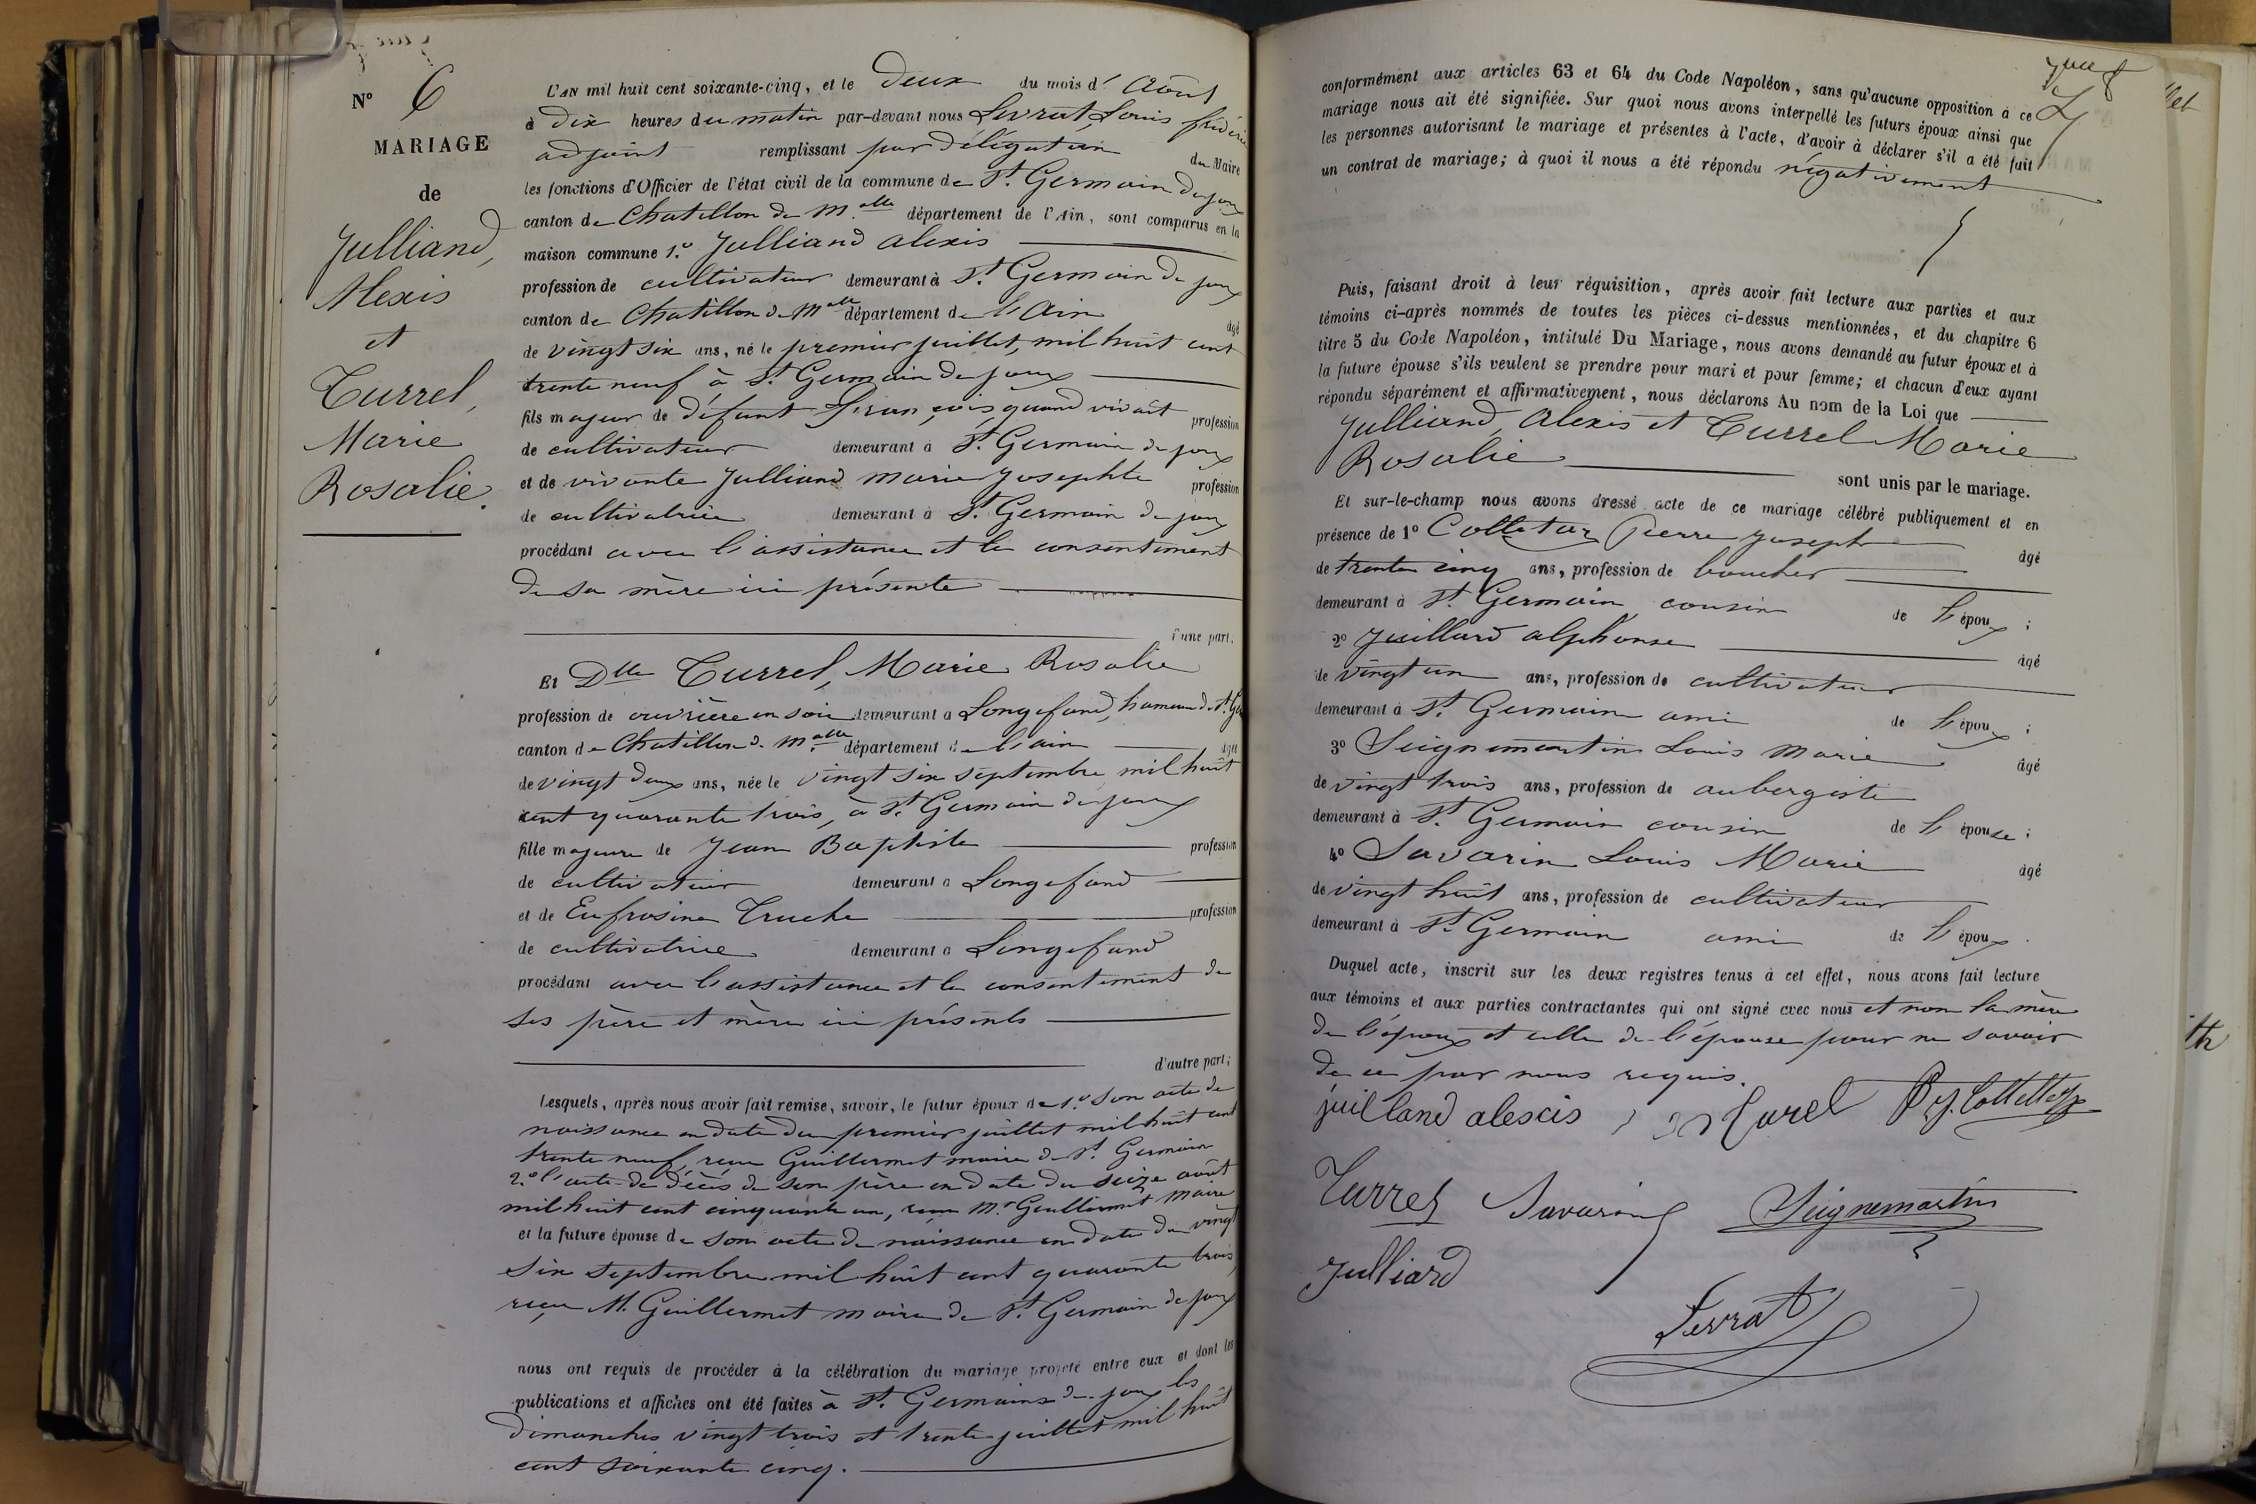 N° 6
MARIAGE
de
Julliand,
Alexis
et
Turrel,
Marie
Rosalie.
L'AN mil huit cent soixante-cinq, et le deux du mois d' Août
à dix heures du matin par-devant nous Levrat, Louis frédéric
adjoint remplissant par délégation du Maire
les fonctions d'Officier de l'état civil de la commune de St. Germain de joux
canton de Chatillon de M.alle département de l'Ain, sont comparus en la
maison commune 1.° Julliand Alexis
profession de cultivateur demeurant à St. Germain de joux
canton de Chatillon de M.alle département de l'Ain âgé
de vingt six ans, né le premier juillet, mil huit cent
trente neuf, à St. Germain de joux
fils majeur de défunt françois, quand vivait profession
de cultivateur demeurant à St. Germain de joux
et de vivante Julliand marie josephte profession
de cultivatrice demeurant à St. Germain de joux
procédant avec l'assistance et le consentement
de sa mère ici présente
d'une part,
Et Dlle Turrel, Marie Rosalie
profession de ouvrière en soie demeurant à Longefand, hameau de St. Ger
canton de Chatillon de M.alle département de l'ain âgée
de vingt deux ans, née le vingt six septembre mil huit
cent quarante trois, à St. Germain de joux
fille majeure de Jean Baptiste profession
de cultivateur demeurant à Longefand
et de Eufrosine Truche profession
de cultivatrice demeurant à Longefand
procédant avec l'assistance et le consentement de
ses père et mère ici présents
d'autre part;
Lesquels, après nous avoir fait remise, savoir, le futur époux de 1.° son acte de
naissance en date du premier juillet mil huit cent
trente neuf, reçu Guillermet maire de St. Germain
2.° l'acte de décès de son père en date du seize août
mil huit cent cinquante un, reçu Mr. Guillermet maire
et la future épouse de son acte de naissance en date du vingt
six septembre mil huit cent quarante trois,
reçu M. Guillermet maire de St. Germain de joux
nous ont requis de procéder à la célébration du mariage projeté entre eux et dont les
publications et affiches ont été faites à St. Germain de joux les
dimanches vingt trois et trente juillet mil huit
cent soixante cinq.
conformément aux articles 63 et 64 du Code Napoléon, sans qu'aucune opposition à ce
mariage nous ait été signifiée. Sur quoi nous avons interpellé les futurs époux ainsi que
les personnes autorisant le mariage et présentes à l'acte, d'avoir à déclarer s'il a été fait
un contrat de mariage; à quoi il nous a été répondu négativement
Puis, faisant droit à leur réquisition, après avoir fait lecture aux parties et aux
témoins ci-après nommés de toutes les pièces ci-dessus mentionnées, et du chapitre 6
titre 5 du Code Napoléon, intitulé Du Mariage, nous avons demandé au futur époux et à
la future épouse s'ils veulent se prendre pour mari et pour femme; et chacun d'eux ayant
répondu séparément et affirmativement, nous déclarons Au nom de la Loi que
Julliand, Alexis et Turrel Marie
Rosalie sont unis par le mariage.
Et sur-le-champ nous avons dressé acte de ce mariage célébré publiquement et en
présence de 1° Collettaz Pierre joseph âgé
de trente cinq ans, profession de boucher
demeurant à St. Germain, cousin de l'époux ;
2° Juillard alphonse âgé
de vingt un ans, profession de cultivateur
demeurant à St. Germain ami de l'époux ;
3° Seignemartin Louis Marie âgé
de vingt trois ans, profession de aubergiste
demeurant à St. Germain cousin de l'épouse ;
4° Savarin Louis Marie âgé
de vingt huit ans, profession de cultivateur
demeurant à St. Germain ami de l'époux.
Duquel acte, inscrit sur les deux registres tenus à cet effet, nous avons fait lecture
aux témoins et aux parties contractantes qui ont signé avec nous et non la mère
de l'époux et celle de l'épouse pour ne savoir
de ce par nous requis.
juilland alescis Turel P. J. Collettaz
Turrel Savarin Seignemartin
Julliard
Levrat